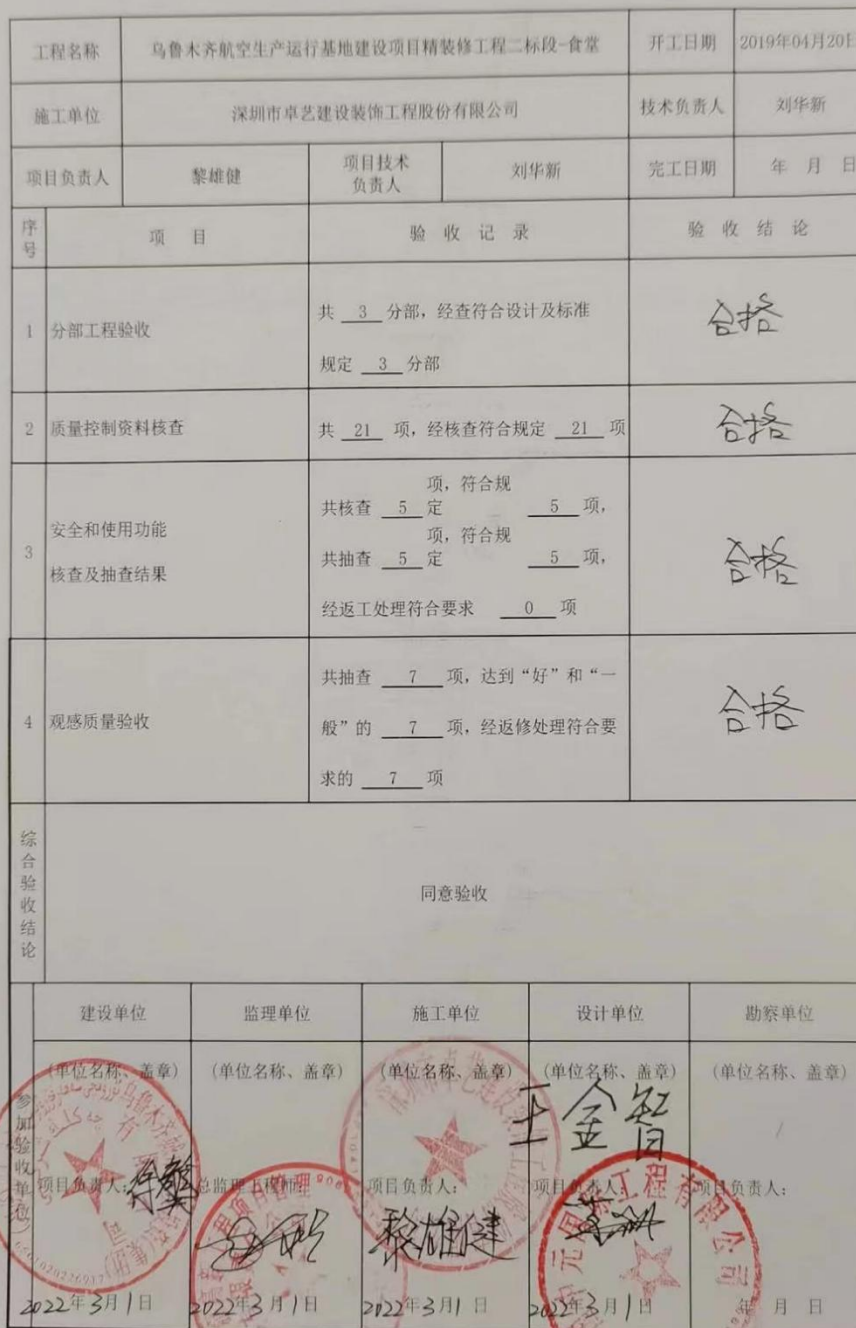 工程名称 乌鲁木齐航空生产运行基地建设项目精装修工程二标段-食堂 开工日期 2019年04月20日
施工单位 深圳市卓艺建设装饰工程股份有限公司 技术负责人 刘华新
项目负责人 黎雄健 项目技术负责人 刘华新 完工日期 年 月 日
序号 项 目 验 收 记 录 验 收 结 论
1 分部工程验收
共 3 分部，经查符合设计及标准
规定 3 分部
合格
2 质量控制资料核查 共 21 项，经核查符合规定 21 项 合格
3 安全和使用功能
核查及抽查结果
项，符合规
共核查 5 定 5 项，
项，符合规
共抽查 5 定 5 项，
经返工处理符合要求 0 项
合格
4 观感质量验收
共抽查 7 项，达到“好”和“一
般”的 7 项，经返修处理符合要
求的 7 项
合格
综合验收结论
同意验收
参加验收单位
建设单位 监理单位 施工单位 设计单位 勘察单位
(单位名称、盖章) (单位名称、盖章) (单位名称、盖章) (单位名称、盖章) (单位名称、盖章)
王金智
项目负责人： 总监理工程师： 项目负责人： 项目负责人： 项目负责人：
黎雄健
2022年3月1日 2022年3月1日 2022年3月1日 2022年3月1日 年 月 日